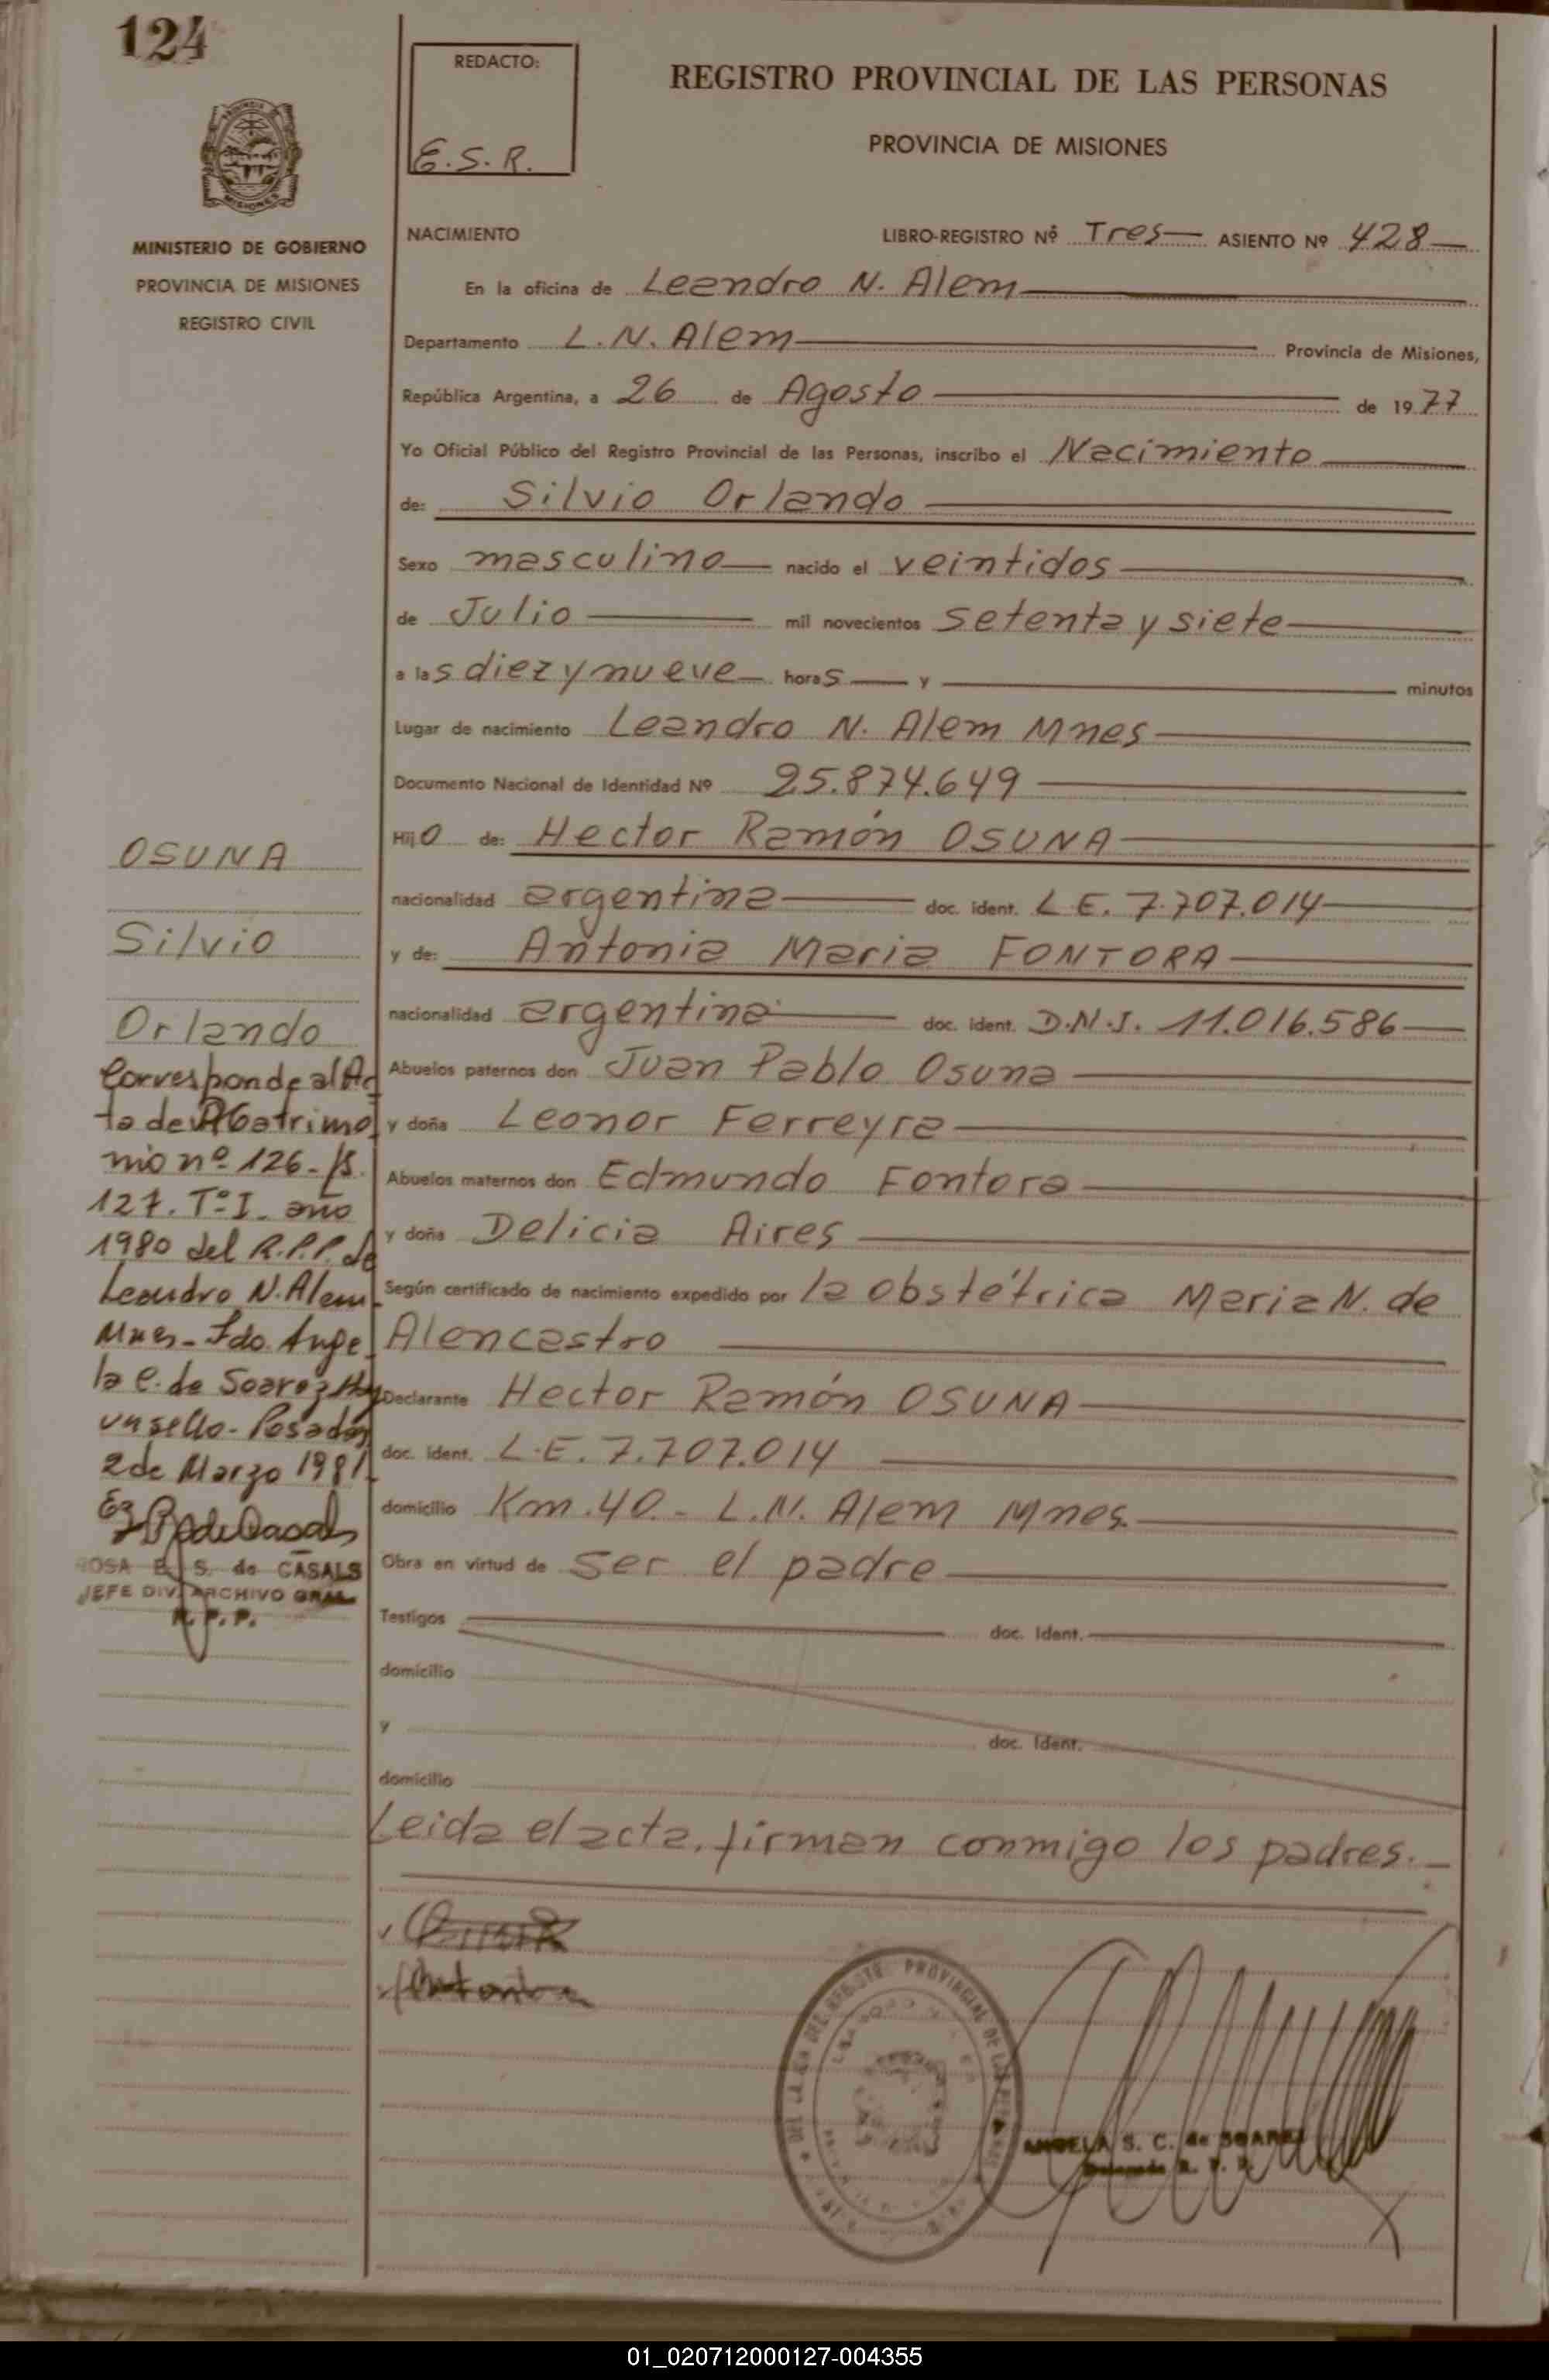 124
REDACTO:
E.S.R.
REGISTRO PROVINCIAL DE LAS PERSONAS
PROVINCIA DE MISIONES
MINISTERIO DE GOBIERNO
PROVINCIA DE MISIONES
REGISTRO CIVIL
NACIMIENTO LIBRO-REGISTRO Nº Tres ASIENTO Nº 428
En la oficina de Leandro N. Alem
Departamento L.N. Alem Provincia de Misiones,
República Argentina, a 26 de Agosto de 1977
Yo Oficial Público del Registro Provincial de las Personas, inscribo el Nacimiento
de: Silvio Orlando
Sexo masculino nacido el veintidos
de Julio mil novecientos setenta y siete
a las diez y nueve horas y minutos
Lugar de nacimiento Leandro N. Alem Mnes
Documento Nacional de Identidad Nº 25.874.649
Hijo de: Hector Ramón OSUNA
nacionalidad argentina doc. ident. L E. 7.707.014
y de: Antonia Maria FONTORA
nacionalidad argentina doc. ident. D.N.I. 11.016.586
Abuelos paternos don Juan Pablo Osuna
y doña Leonor Ferreyra
Abuelos maternos don Edmundo Fontora
y doña Delicia Aires
Según certificado de nacimiento expedido por la obstétrica Maria N. de
Alencastro
Declarante Hector Ramón OSUNA
doc. ident. L.E. 7.707.014
domicilio Km. 40.- L.N. Alem Mnes.
Obra en virtud de ser el padre
Testigos doc. Ident.
domicilio
y doc. Ident.
domicilio
Leida el acta, firman conmigo los padres.
OSUNA
Silvio
Orlando
Corresponde al Ac
ta de Matrimo
nio nº 126-
127. Tº I. año
1980 del R.P.P. de
Leandro N. Alem
Mnes- Fdo. Ange
la C. de Soarez Hay
un sello- Posadas
2 de Marzo 1981
ROSA E. S. de CASALS
JEFE DIV. ARCHIVO GRAL
R.P.P.
Antonia
PROVINCIAL DE LAS
ANGELA S. C. de SOAREZ
R. P. P.
01_020712000127-004355